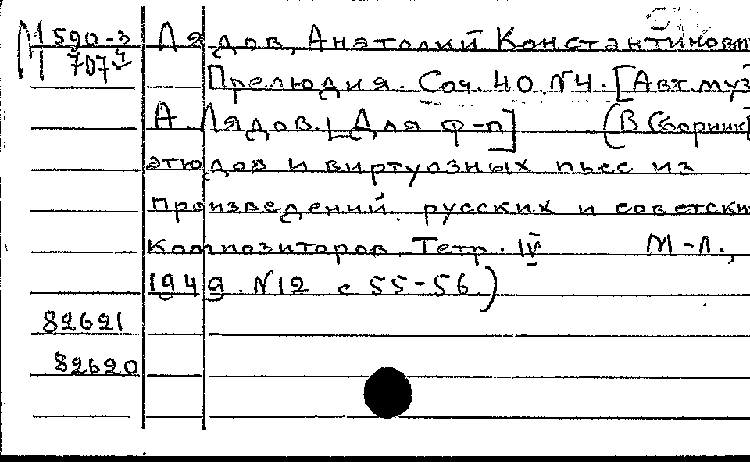 М 590-3 Лядов, Анатолий Константинович
707 Прелюдия. Соч. 40 №4. [Авт. муз.
А. Лядов. [Для ф-п] (В Сборник
этюдов и виртуозных пьес из
произведений русских и советски
композиторов. Тетр. IV М-Л.,
1949. №12 с 55-56.)
82621
82620